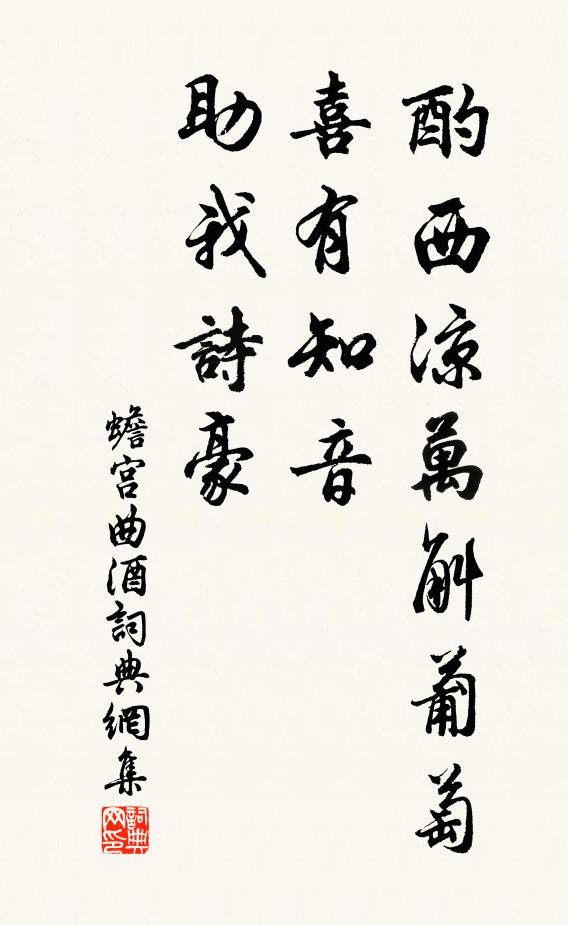 酌西凉萬斛葡萄
喜有知音
助我詩豪
蟾宮曲酒詞典網集
詞典网印